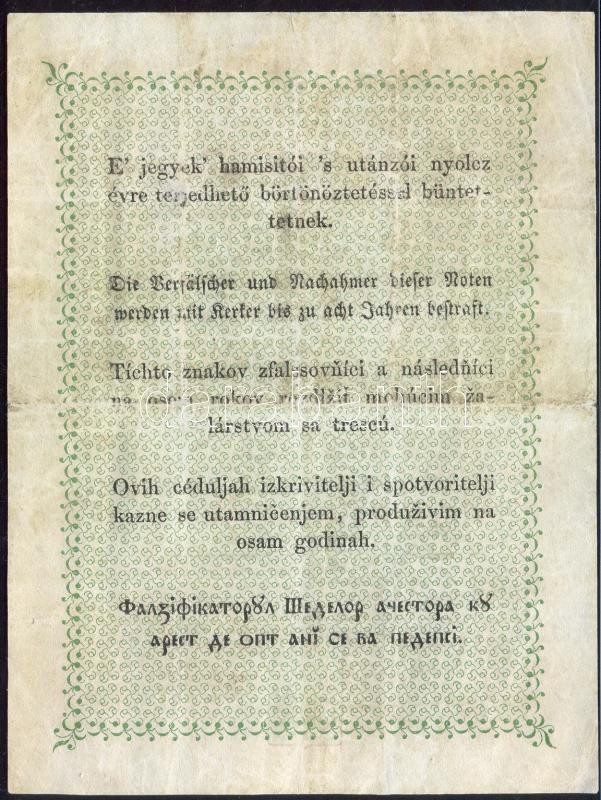 E' jegyek' hamisitói 's utánzói nyolcz
évre terjedhető börtönöztetéssel büntet-
tetnek.
Die Verfälscher und Nachahmer dieser Noten
werden mit Kerker bis zu acht Jahren bestraft.
Tíchto znakov zfalšovňíci a následňíci
na osem rokov rozďlžiť mohúcim ža-
lárstvom sa trescú.
Ovih céduljah izkrivitelji i spotvoritelji
kazne se utamničenjem, produživim na
osam godinah.
Фалзіфікаторꙋл Шеделор ачестора кꙋ
арест де опт анй се ва педепсі.